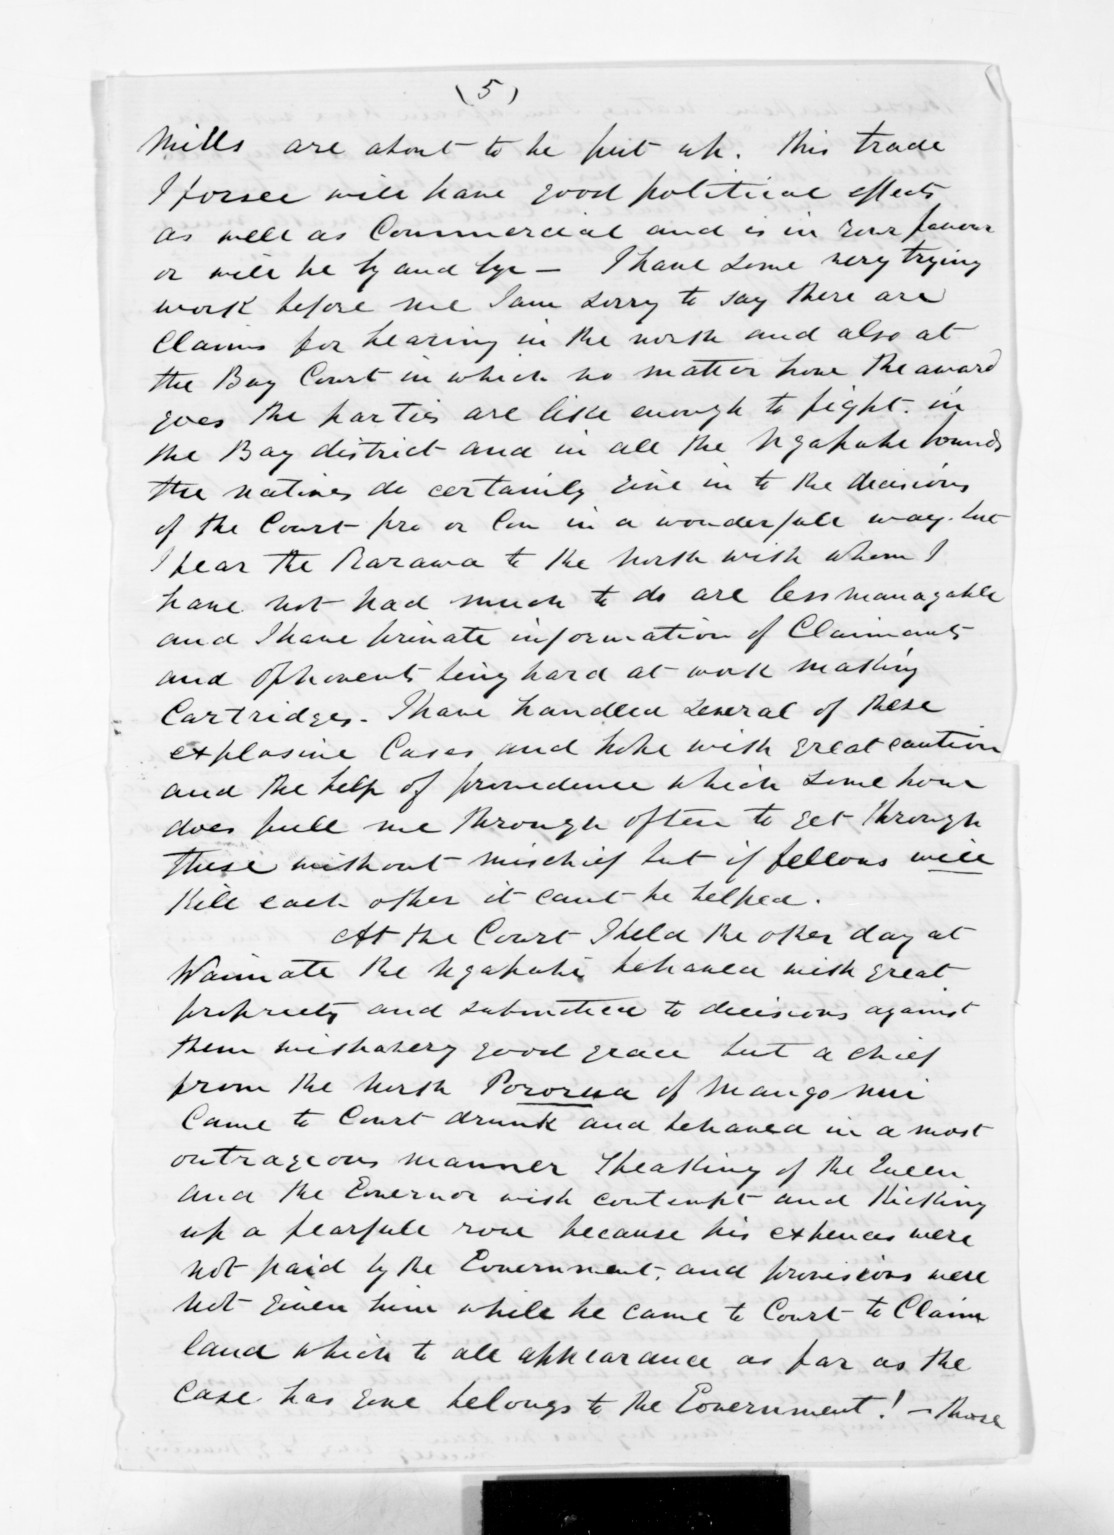 (5)
Mills are about to be put up. This trade
I forsee will have good political effects
as well as Commercial and is in your favour
or will be by and bye — I have some very trying
work before me I am sorry to say there are
Claims for hearing in the north and also at
the Bay Court in which no matter how the award
goes the parties are like enough to fight. in
the Bay district and in all the Ngapuhi bounds
the natives do certainly give in to the decisions
of the Court pro or Con in a wonderfull way. but
I fear the Rarawa to the North with whom I
have not had much to do are less managable
and I have private information of Claimants
and Opponents being hard at work making
Cartridges. I have handled several of these
explosive Cases and hope with great caution
and the help of providence which some how
does pull me through often to get through
these without mischief but if fellows will
Kill each other it cant be helped.
At the Court I held the other day at
Waimate the Ngapuhi behaved with great
propriety and submitted to decisions against
them with a very good grace but a chief
from the North Pororua of Mango nui
Came to Court drunk and behaved in a most
outrageous manner speaking of the Queen
and the Governor with contempt and Kicking
up a fearfull row because his expences were
not paid by the Government. and provisions were
not given him while he came to Court to Claim
land which to all appearance as far as the
case has gone belongs to the Government! — those